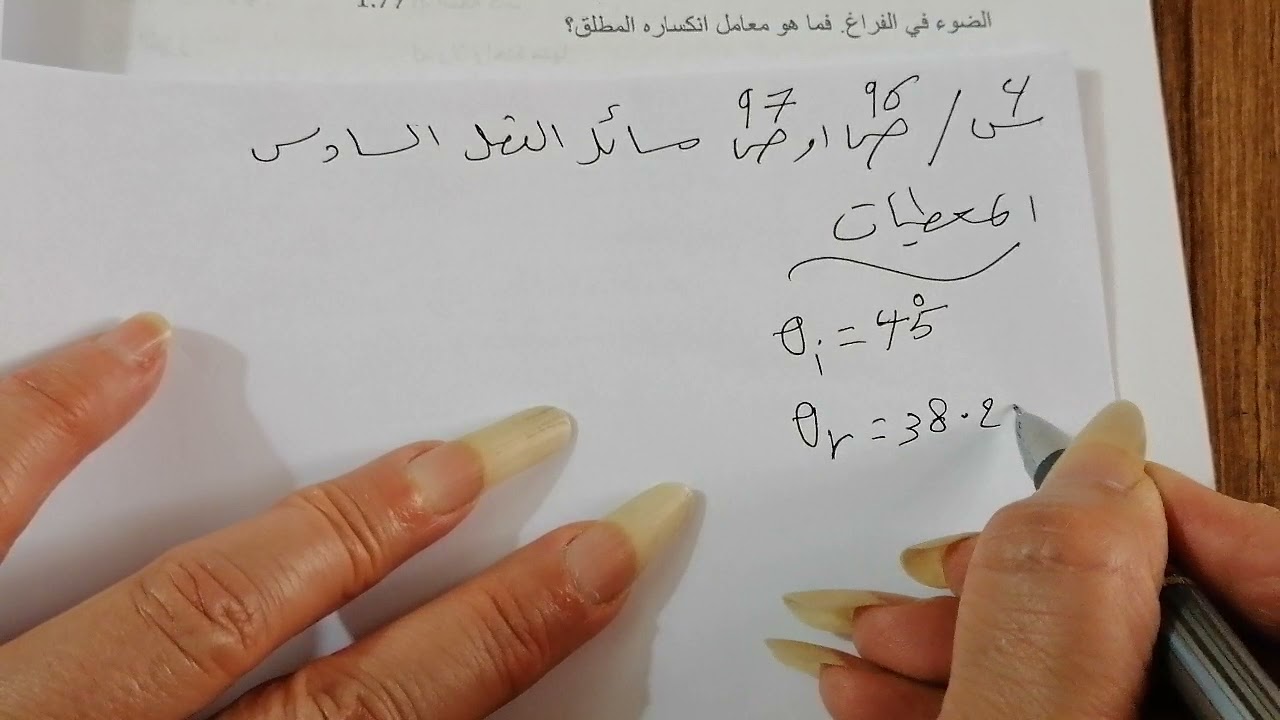 1.77
الضوء في الفراغ. فما هو معامل انكساره المطلق؟
س6 / ص96 او ص97 مسائل الفصل السادس
المعطيات
θi = 45°
θr = 38.2